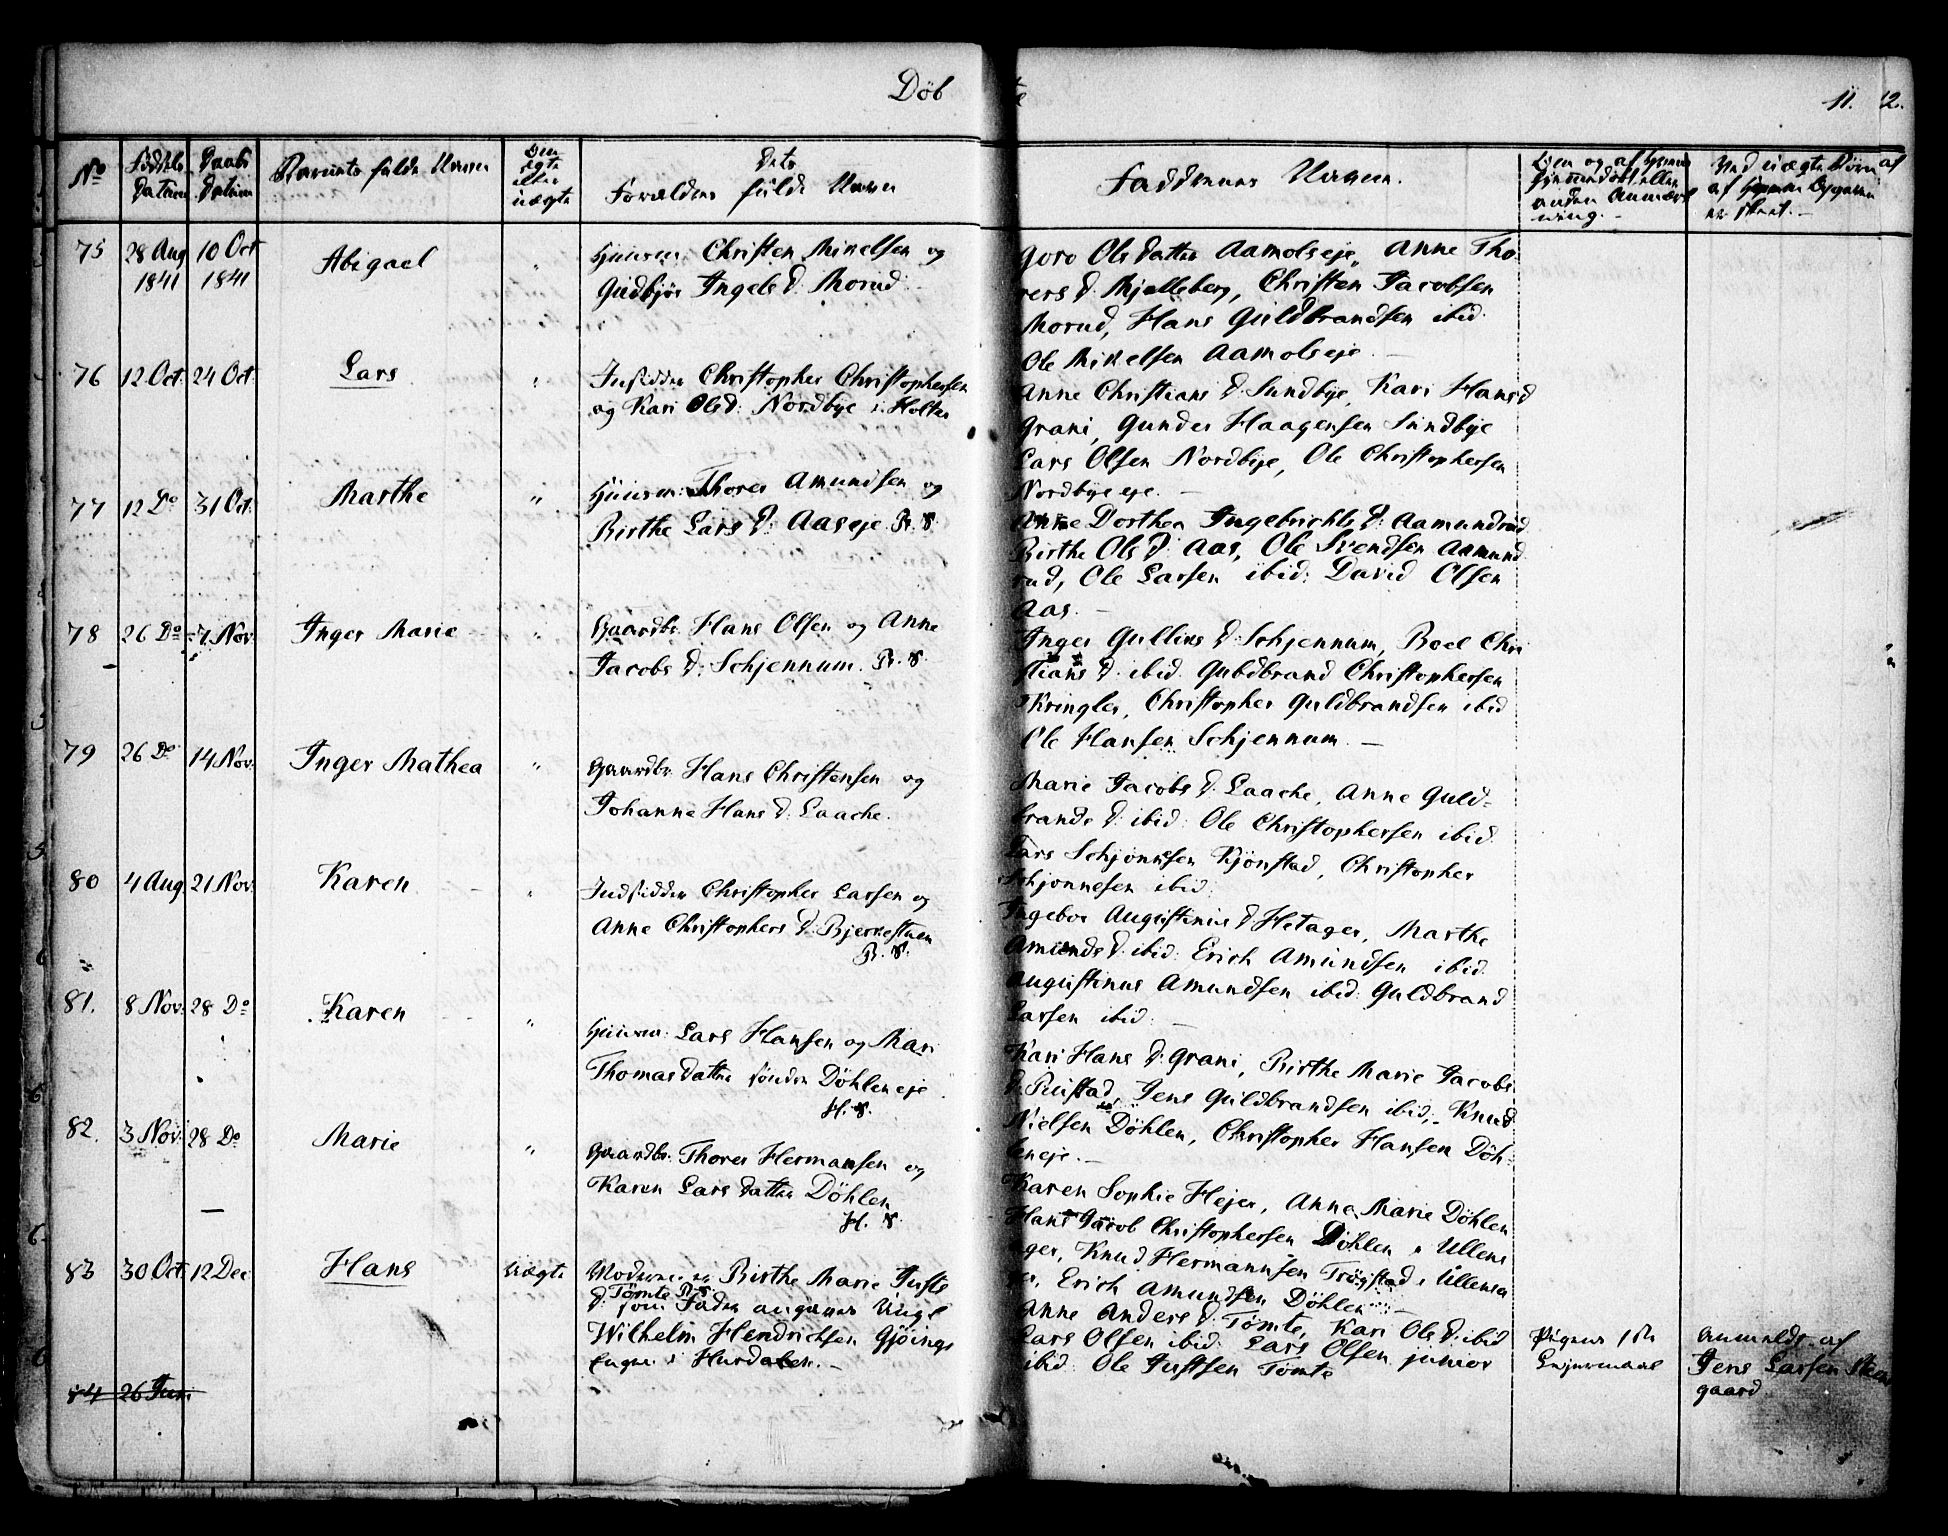 Döb
11. 12.
No
Födsels Datum
Daabs Datum
Barnets fulde Navn
Om ægte eller uægte
Dets Forældres fulde Navn
Faddernes Navne.
anden Anmærkning.
75 28 Aug 1841 10 Oct 1841 Abigael " Huusm: Christen Mikelsen og
Gudbjör Ingels D: Morud.
Goro Ols datter Aamolseje, Anne Tho
rers D. Mjelleberg, Christen Jacobsen
Morud, Hans Guldbrandsen ibid.
Ole Mikelsen Aamolseje. —
76 12 Oct. 24 Oct. Lars " Indsidder Christopher Christophersen
og Kari Ols D: Nordbye i Holter
Anne Christians D. Sundbye, Kari Hans D
Grani, Gunder Haagensen Sundbye
Lars Olsen Nordbye, Ole Christophersen
Nordbye eje. —
77 12 Do 31 Oct. Marthe " Huusm: Thorer Amundsen og
Birthe Lars D: Aas eje
Anne Dorthea Ingebrichts D: Aamundrud
Birthe Ols D: Aas, Ole Svendsen Aamund
rud, Ole Larsen ibid: David Olsen
Aas. —
78 26 Do 7 Nov. Inger Marie " Gaardbr. Hans Olsen og Anne
Jacobs D: Schjennum.
Inger Gullins D: Schjennum, Boel Chri
stians D. ibid. Gulbdbrand Christophersen
Kringler, Christopher Guldbrandsen ibid
Ole Hansen Schjennum. —
79 26 Do 14 Nov. Inger Mathea " Gaardbr. Hans Christensen og
Johanne Hans D: Laache.
Marie Jacobs D. Laache, Anne Guld-
brands D: ibid: Ole Christophersen ibid.
Lars Schjönnesen Kjönstad, Christopher
Schjonnesen ibid.
80 4 Aug 21 Nov. Karen " Indsidder Christopher Larsen og
Anne Christophers D: Bjerkestuen
Ingebor Augustinus D. Hetager, Marthe
Amunds D: ibid: Erich Amundsen ibid.
Augustinus Amundsen ibid: Guldbrand
Larsen ibid. —
81. 8 Nov. 28 Do Karen " Huusm: Lars Hansen og Mari
Thomas datter söndre Döhlen eje
H. S.
Kari Hans D: Grani, Birthe Marie Jacobs
D. Ruistad, Jens Guldbrandsen ibid; Knud
Nielsen Döhlen, Christopher Hansen Döh-
leneje. —
82. 3 Nov. 28 Do Marie " Gaardbr. Thorer Hermansen og
Karen Lars datter Döhlen
H. S.
Karen Sophie Hejer, Anne Marie Döhlen
Hans Jacob Christophersen Döhlen i Ullens
ager, Knud Hermannsen Trögstad i Ullensa
ger, Erich Amundsen Döhlen —
83 30 Oct. 12 Dec Hans Uægte Moderen er Birthe Marie Juste
D: Tömte som Fader angives Ungk
Wilhelm Hendrichsen Gjöings
Engen i Hurdalen. —
Anne Anders D: Tömte, Kari Ols D: ibid
Lars Olsen ibid: Lars Olsen junior
ibid: Ole Justsen Tömte
Pigens 1ste
Leiermaal
Anmeldt af
Jens Larsen
gaard
84 26 Juni